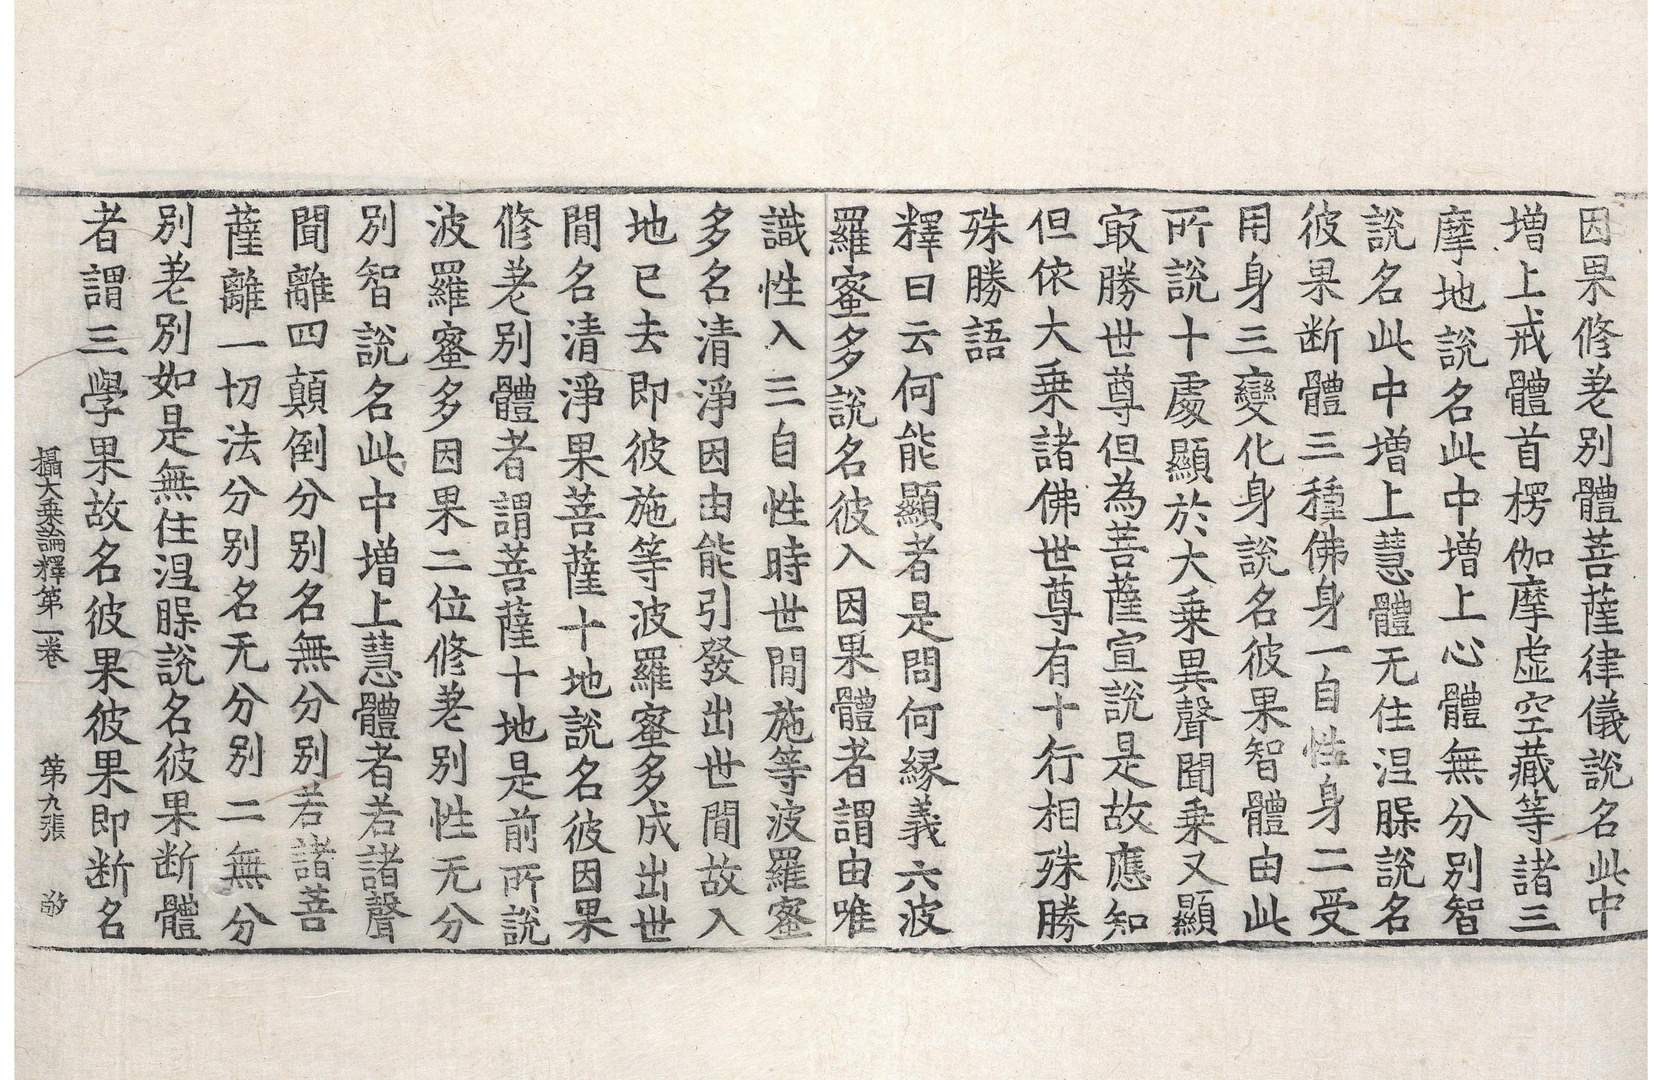 因果修差別體菩薩律儀說名此中
增上戒體首楞伽摩虛空藏等諸三
摩地說名此中增上心體無分別智
說名此中增上慧體无住涅槃說名
彼果断體三種佛身一自性身二受
用身三變化身說名彼果智體由此
所說十處顯於大乗異聲聞乗又顯
㝡勝世尊但為菩薩宣說是故應知
但依大乗諸佛世尊有十行相殊勝
殊勝語
釋曰云何能顯者是問何縁義六波
羅蜜多說名彼入因果體者謂由唯
識性入三自性時世間施等波羅蜜
多名清淨因由能引發出世間故入
地已去即彼施等波羅蜜多成出世
間名清淨果菩薩十地說名彼因果
修差別體者謂菩薩十地是前所說
波羅蜜多因果二位修差別性无分
別智說名此中增上慧體者若諸聲
聞離四顛倒分別名無分別若諸菩
薩離一切法分別名无分別二無分
別差別如是無住涅槃說名彼果断體
者謂三學果故名彼果彼果即断名
攝大乗論釋第一卷　第九張　㪅